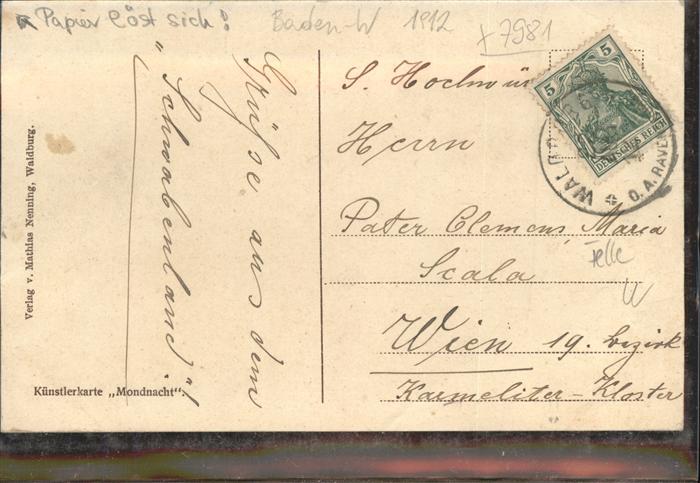 Papier löst sich!
Baden-W 1912
+7981
Grüße aus dem
"Schwabenland"!
Verlag v. Mathias Nenning, Waldburg.
Künstlerkarte „Mondnacht".
S. Hochwü
Herrn
Pater Clemens Maria
Scala
Wien 19. bezirk
Karmeliter-Kloster
5 5
DEUTSCHES REICH
WALDB
O. A. RAVE